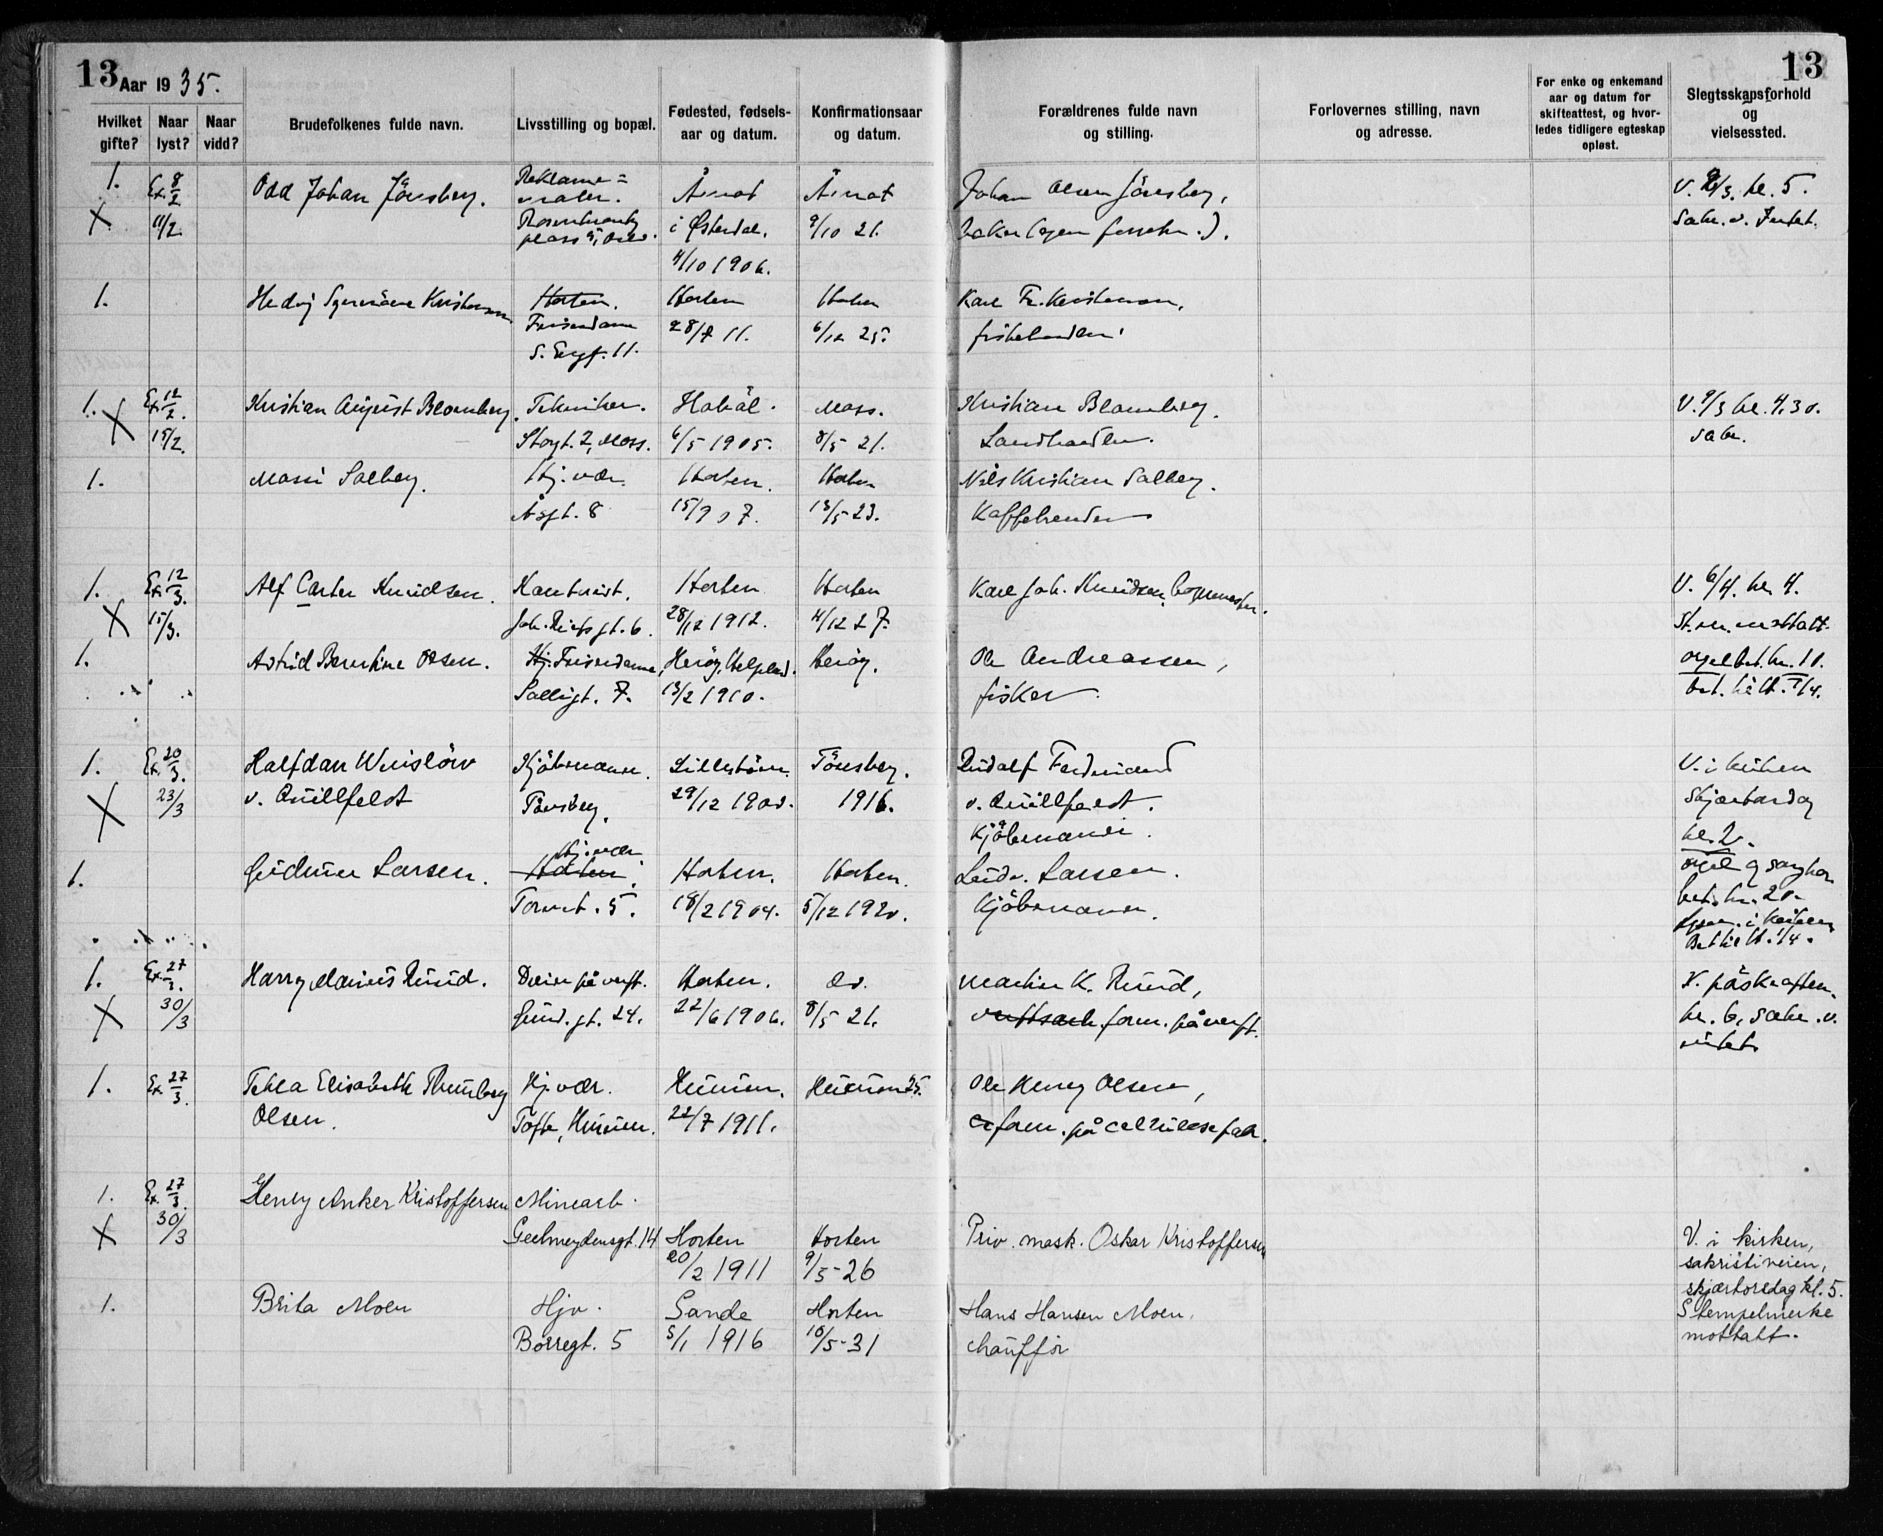 13 Aar 1935.
13
Hvilket gifte?
Naar lyst?
Naar vidd?
Brudefolkenes fulde navn.
Livsstilling og bopæl.
Fødested, fødsels-
aar og datum.
Konfirmationsaar
og datum.
Forældrenes fulde navn
og stilling.
Forlovernes stilling, navn
og adresse.
For enke og enkemand
aar og datum for
skifteattest, og hvor-
ledes tidligere egteskap
opløst.
Slegtsskapsforhold
og
vielsessted.
1. Ex. 8/2 Odd Johan Jönsberg. Reklame= Åmot Åmot Johan Olsen Jönsberg, kl. 5.
X 11/2. maler. i Østerdal. 9/10 21. baker
plass 5, Oslo. 4/10 1906.
1. Hedvig Kristensen Horten. Horten Horten Karl Fr. Kristensen,
Frisørdame 28/7 11. 6/12 25.
11.
1. Ex. 12/2. Kristian August Blomberg. Tekniker. Hobøl. Moss. Kristian Blomberg. V. 9/3 kl. 4.30.
X 15/2. Stogt. 2, Moss. 6/5 1905. 8/5 21. Landhandler. sakr.
1. Massi Solberg. Hj. vær. Horten. Horten Nils Kristian Solberg.
Åsgt. 8 15/9 07. 13/5 23.
1. Ex. 12/3. Alf Carter Knudsen. Kontorist. Horten Horten Karl Joh. Knudsen, V. 6/4. kl. 4.
X 15/3. gt. 6. 28/12 1912. 4/12 27. St.m. mottatt.
1. Astrid Berntine Olsen. Hj. Frisørdame, Herøy, Helgeland. Herøy. Ole Andreassen, orgel bet. kr. 10.
Solligt. 7. 13/2 1910. fisker.
1. Ex. 20/3. Halfdan Winslöw Kjöbmann. Lilleström. Tönsberg. Rudolf Ferdinand V. i kirken
X 23/3 v. Quillfeldt Tönsberg. 29/12 1900. 1916. v. Quillfeldt. Skjærtorsdag
Kjöbmann. kl. 2.
1. Gudrun Larsen. Hj. vær. Horten. Horten. Horten. Ludv. Larsen. orgel og sang
Torvet. 5. 18/2 1904. 5/12 1920. Kjöbmann. bet. kr. 20.
1. Ex. 27/3. Harry Marius Ruud. Dreier på verft. Horten. do. Martin K. Ruud, V. påskeaften.
X 30/3 gt. 24. 22/6 1906. 8/5 21. form. på verft. kl. 6, sakr.
1. Ex. 27/3. Tekla Elisabeth Thunberg Hj. vær. Hurum. Hurum 25. Ole Henry Olsen,
Olsen. Tofte, Hurum. 22/7 1911. form. på cellulosefabr.
1. Ex. 27/3. Henry Anker Kristoffersen Minearb.
X 30/3 Geelmeydensgt. 14 Horten Horten Priv. mask. Oskar Kristoffersen V. i kirken,
20/2 1911 9/5-26 sakristiveien,
skjærtorsdag kl. 5.
1. Brita Moen Hjv. Sande Horten Hans Hansen Moen, Stempelmerke
Borregt. 5 5/1 1916 10/5-31 chauffør mottatt.